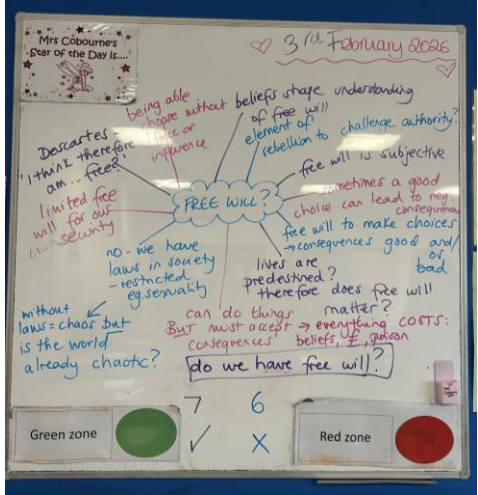 Mrs Cobourne's
Star of the Day is....
3rd February 2026
being able
choose without
or
influence
beliefs shape understanding
of free will
element of
rebellion to challenge authority?
Descartes -
"I think therefore
am ... free?"
free will is subjective
limited free
will for our
own security
FREE WILL?
sometimes a good
choice can lead to neg
consequence
free will to make choices
→ consequences good and/
or
bad
no - we have
laws in society
- restricted
eg. sexuality
lives are
predestined?
therefore does free will
matter?
without
laws = chaos but
is the world
already chaotic?
can do things
BUT must accept → everything COSTS:
consequences beliefs, £, prison
do we have free will?
7 6
✓ X
Green zone
Red zone